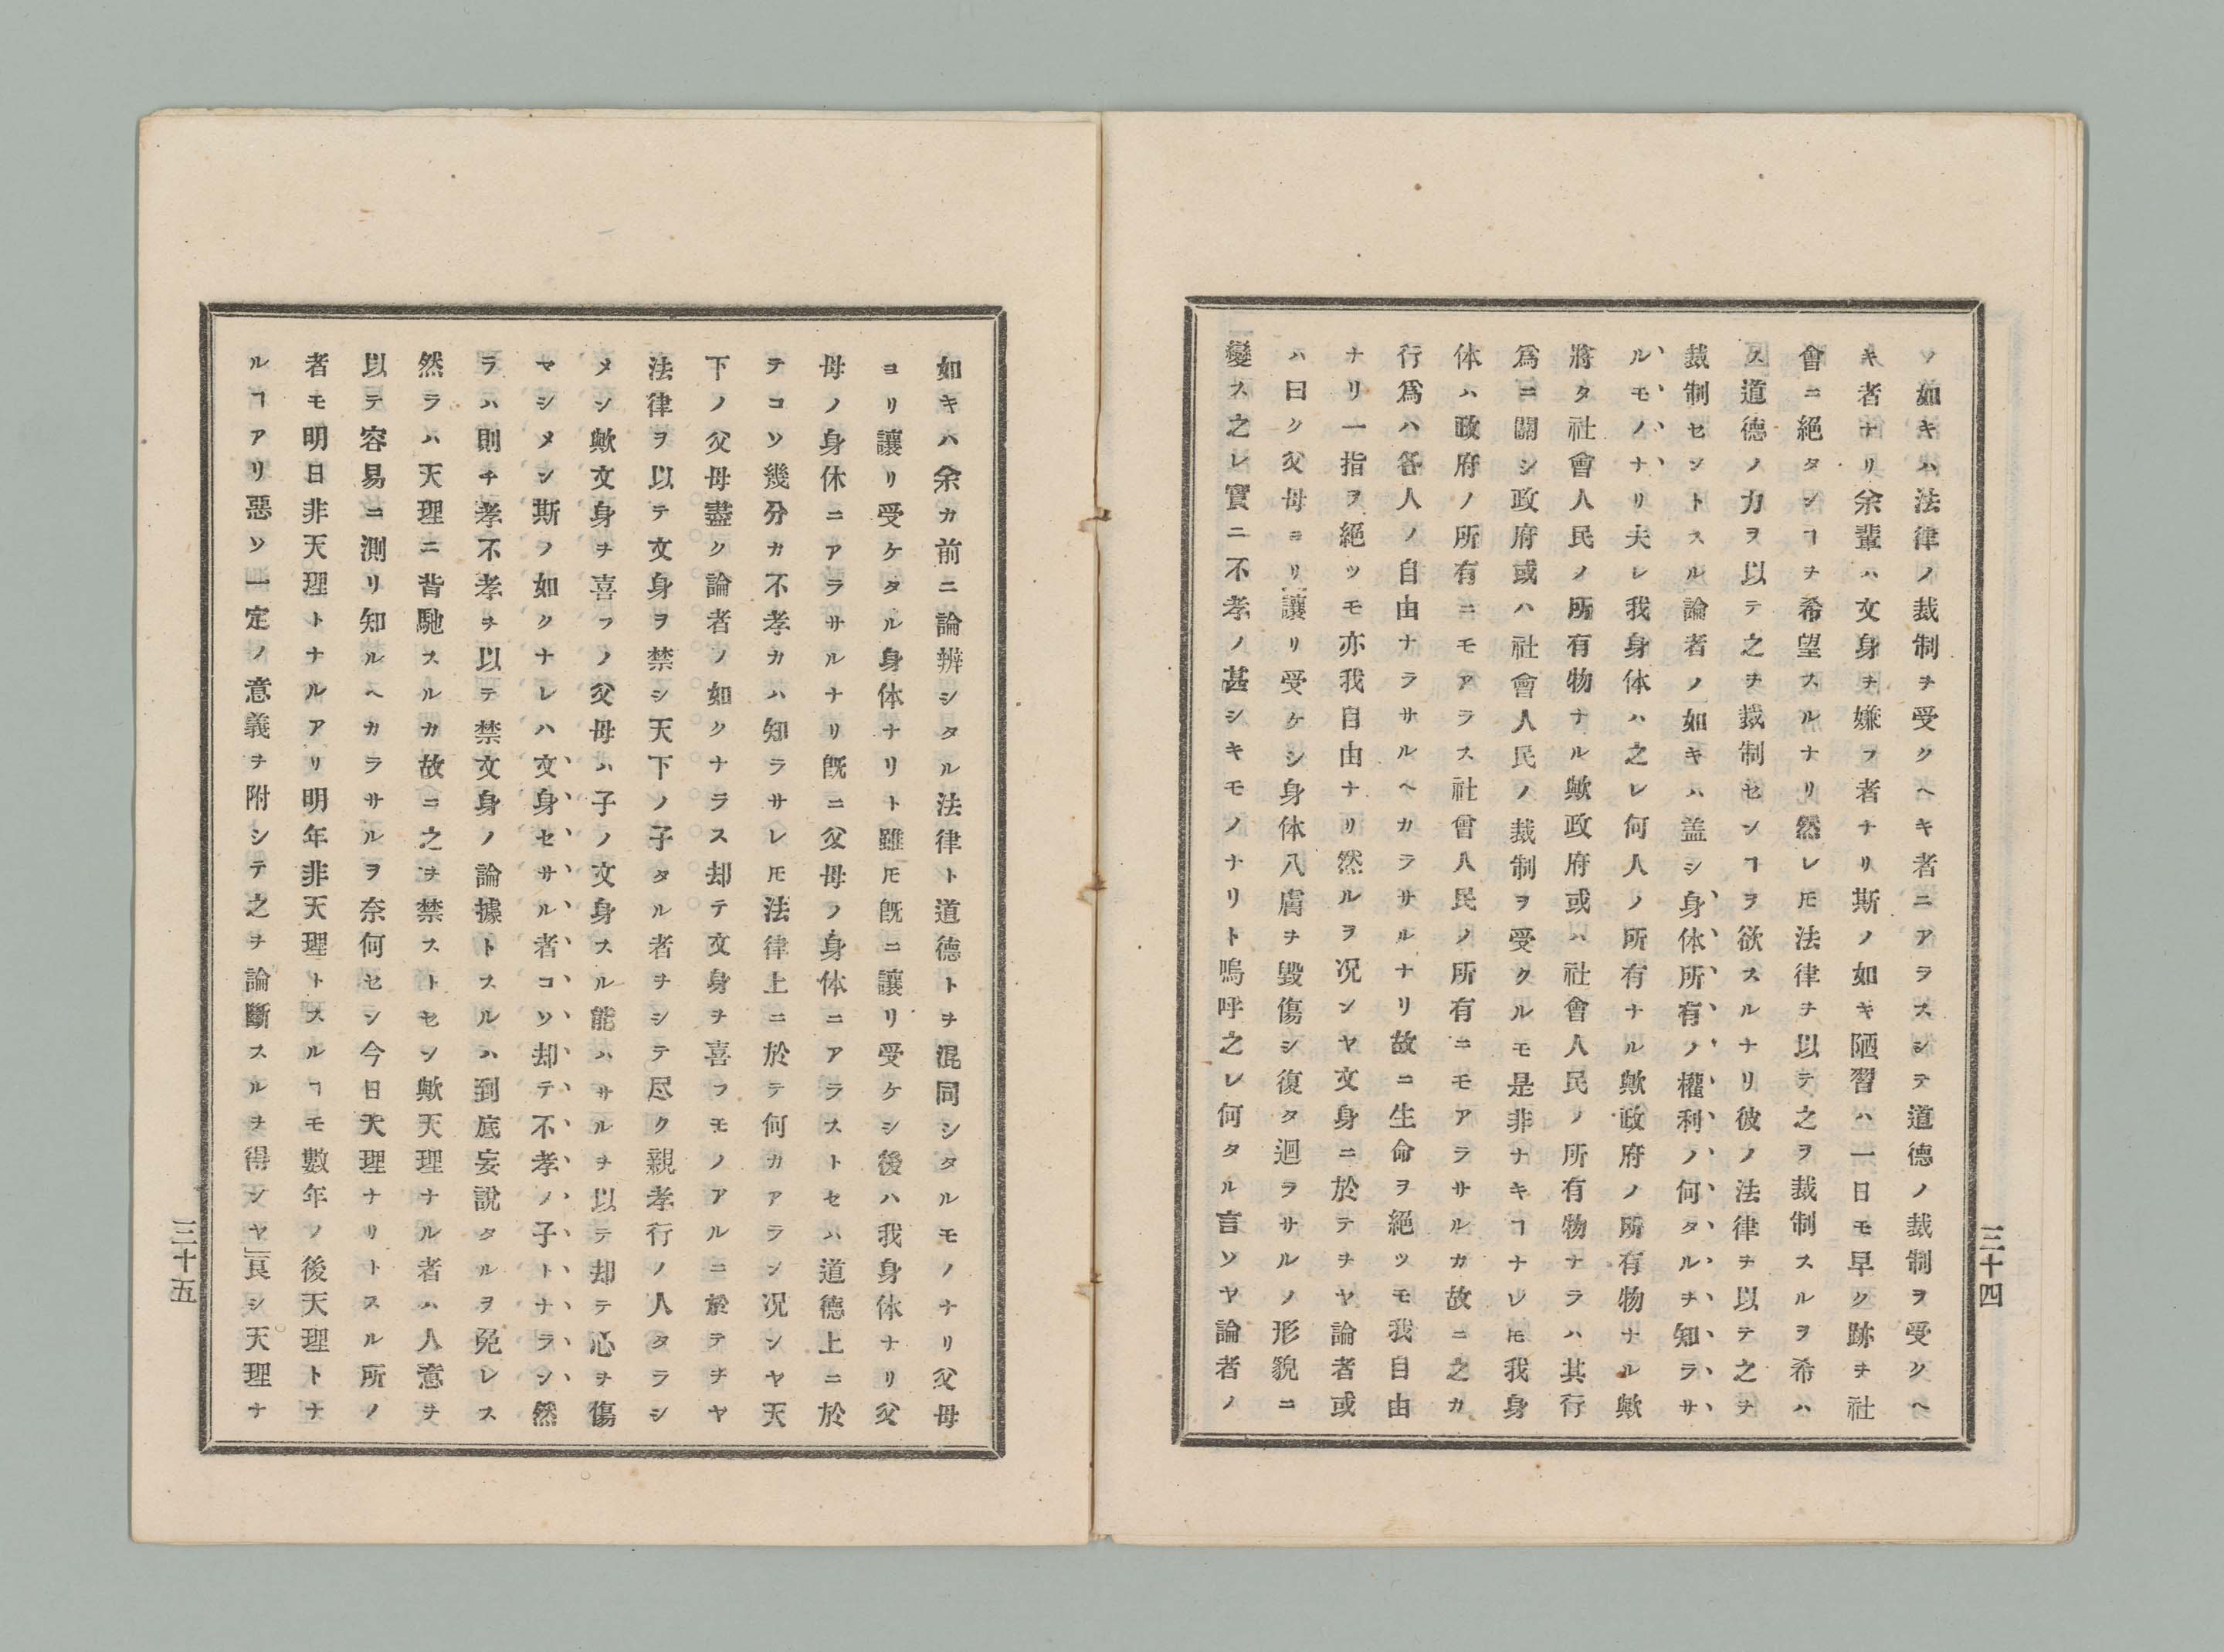 ソ如キハ法律ノ裁制ヲ受クヘキ者ニアラスシテ道德ノ裁制ヲ受クヘ
キ者ナリ余輩ハ文身ヲ嫌フ者ナリ斯ノ如キ陋習ハ一日モ早ク跡ヲ社
會ニ絕タシヿヲ希望スルナリ然レ𪜈法律ヲ以テ之ヲ裁制スルヲ希ハ
ス道德ノ力ヲ以テ之ヲ裁制センヿヲ欲スルナリ彼ノ法律ヲ以テ之ヲ
裁制セントスル論者ノ如キハ盖シ身体所有ノ權利ノ何タルヲ知ラサ
ルモノナリ夫レ我身体ハ之レ何人ノ所有ナル歟政府ノ所有物ナル歟
將タ社會人民ノ所有物ナル歟政府或ハ社會人民ノ所有物ナラハ其行
爲ニ關シ政府或ハ社會人民ノ裁制ヲ受クルモ是非ナキヿナレ𪜈我身
体ハ政府ノ所有ニモアラス社會人民ノ所有ニモアラサルカ故ニ之カ
行爲ハ各人ノ自由ナラサルヘカラサルナリ故ニ生命ヲ絕ツモ我自由
ナリ一指ヲ絕ツモ亦我自由ナリ然ルヲ况ンヤ文身ニ於テヲヤ論者或
ハ曰ク父母ヨリ讓リ受ケシ身体八膚ヲ毀傷シ復タ迴ラサルノ形貌ニ
變ス之レ實ニ不孝ノ甚シキモノナリト嗚呼之レ何タル言ソヤ論者ノ
三十四
如キハ余カ前ニ論辨シタル法律ト道德トヲ混同シタルモノナリ父母
ヨリ讓リ受ケタル身体ナリト雖𪜈旣ニ讓リ受ケシ後ハ我身体ナリ父
母ノ身休ニアラサルナリ旣ニ父母ノ身体ニアラストセハ道德上ニ於
テコソ幾分カ不孝カハ知ラサレ𪜈法律上ニ於テ何カアラン况ンヤ天
下ノ父母盡ク論者ノ如クナラス却テ文身ヲ喜フモノアルニ於テヲヤ
法律ヲ以テ文身ヲ禁シ天下ノ子タル者ヲシテ尽ク親孝行ノ人タラシ
メン歟文身ヲ喜フノ父母ハ子ノ文身スル能ハサルヲ以テ却テ心ヲ傷
マシメン斯ノ如クナレハ文身セサル者コソ却テ不孝ノ子トナラン然
ラハ則チ孝不孝ヲ以テ禁文身ノ論據トスルハ到底妄說タルヲ免レス
然ラハ天理ニ背馳スルカ故ニ之ヲ禁ストセン歟天理ナル者ハ人意ヲ
以テ容易ニ測リ知ルヘカラサルヲ奈何セン今日天理ナリトスル所ノ
者モ明日非天理トナルアリ明年非天理トスルヿモ數年ノ後天理トナ
ルヿアリ惡ソ一定ノ意義ヲ附シテ之ヲ論斷スルヲ得ンヤ」良シ天理ナ
三十五